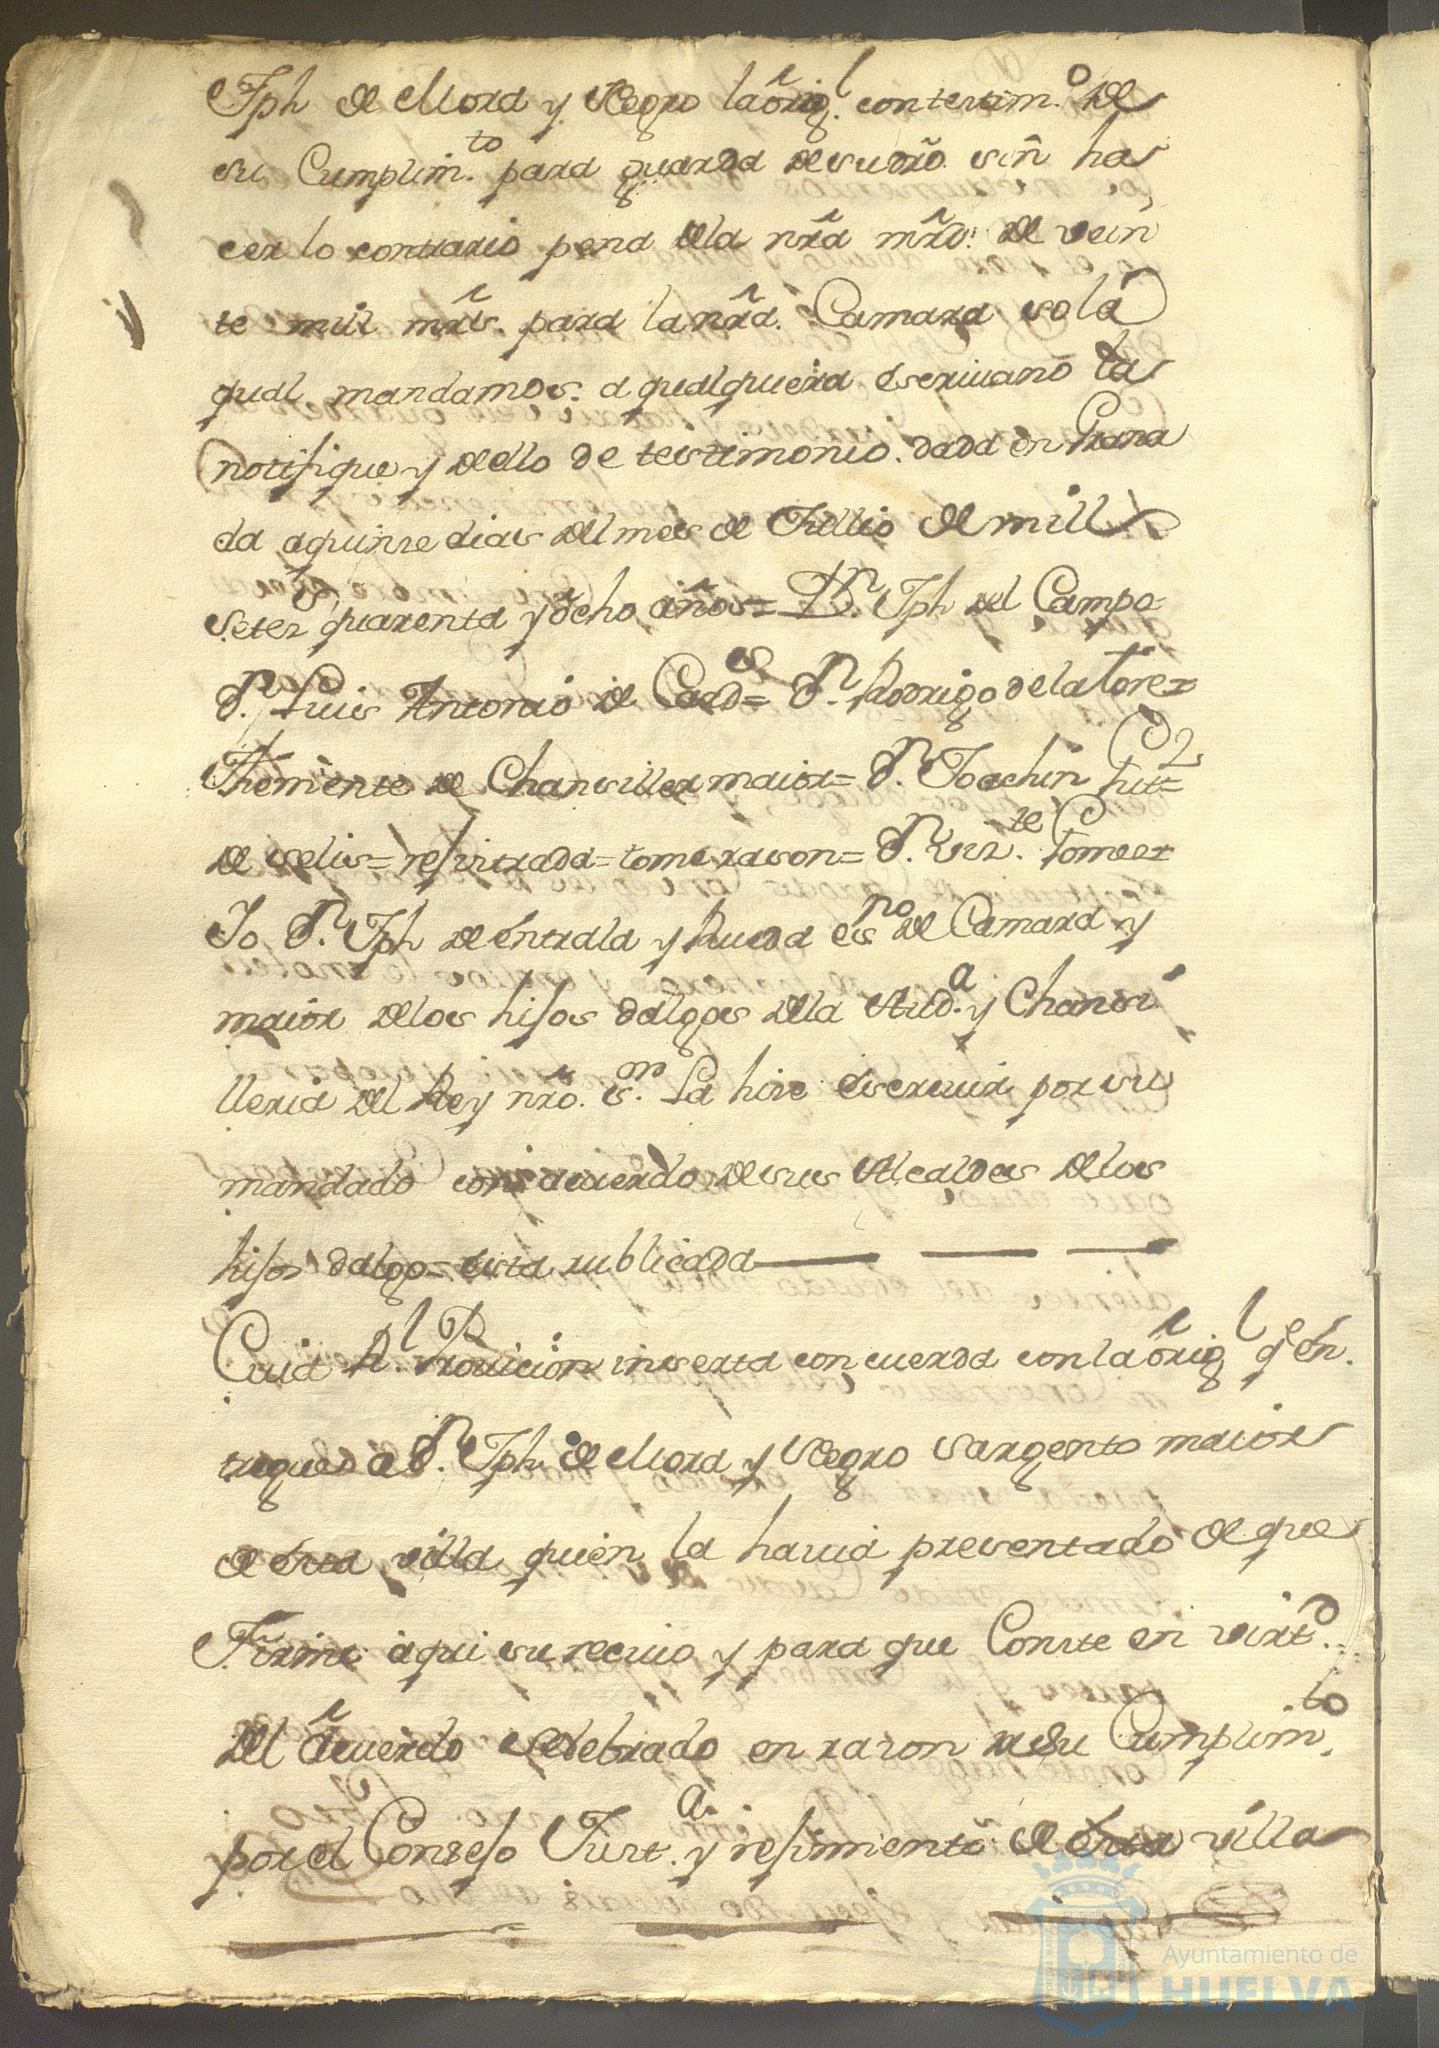 Jph de Mora y Negro la orig.l con testim.o de
su Cumplim.to para guarda de su dro. sin ha
cer lo contrario pena dela nrã mrd. de vein
te mill mrs. para la nrã. Camara so la
qual mandamos. a qualquiera escriuano la
notifique y dello de testimonio. dada en Grana
da a quinse dias del mes de Jullio de mill
setez.s quarenta y ocho años = D.n Jph del Campo
D.n Luis Antonio de = D.n Rodrigo de la Torre =
Theniente de Chansiller maior = D.n Joachin
de selis = resistrada = tome rason = D.n Viz.te
Io D.n Jph de entrala y Rueda es.no de Camara y
maior de los hijos dalgos dela Aud.a y Chansi
lleria del Rey nrõ. s.or La hise escriuir por su
mandado con acuerdo de sus Alcaldes de los
hijos dalgo = esta rublicada
Cuia R.l Prouicion inserta con cuerda con la orig.l q.e en
tregue a D.n Jph de Mora y Negro Sargento maior
de esta villa quien la hauia presentado de que
Firmo aqui su reciuo y para que Conste en virt.d
del acuerdo Selebrado en razon de su Cumplim.to
por el Consejo Just.a y resimiento de esta villa
Ayuntamiento de
HUELVA